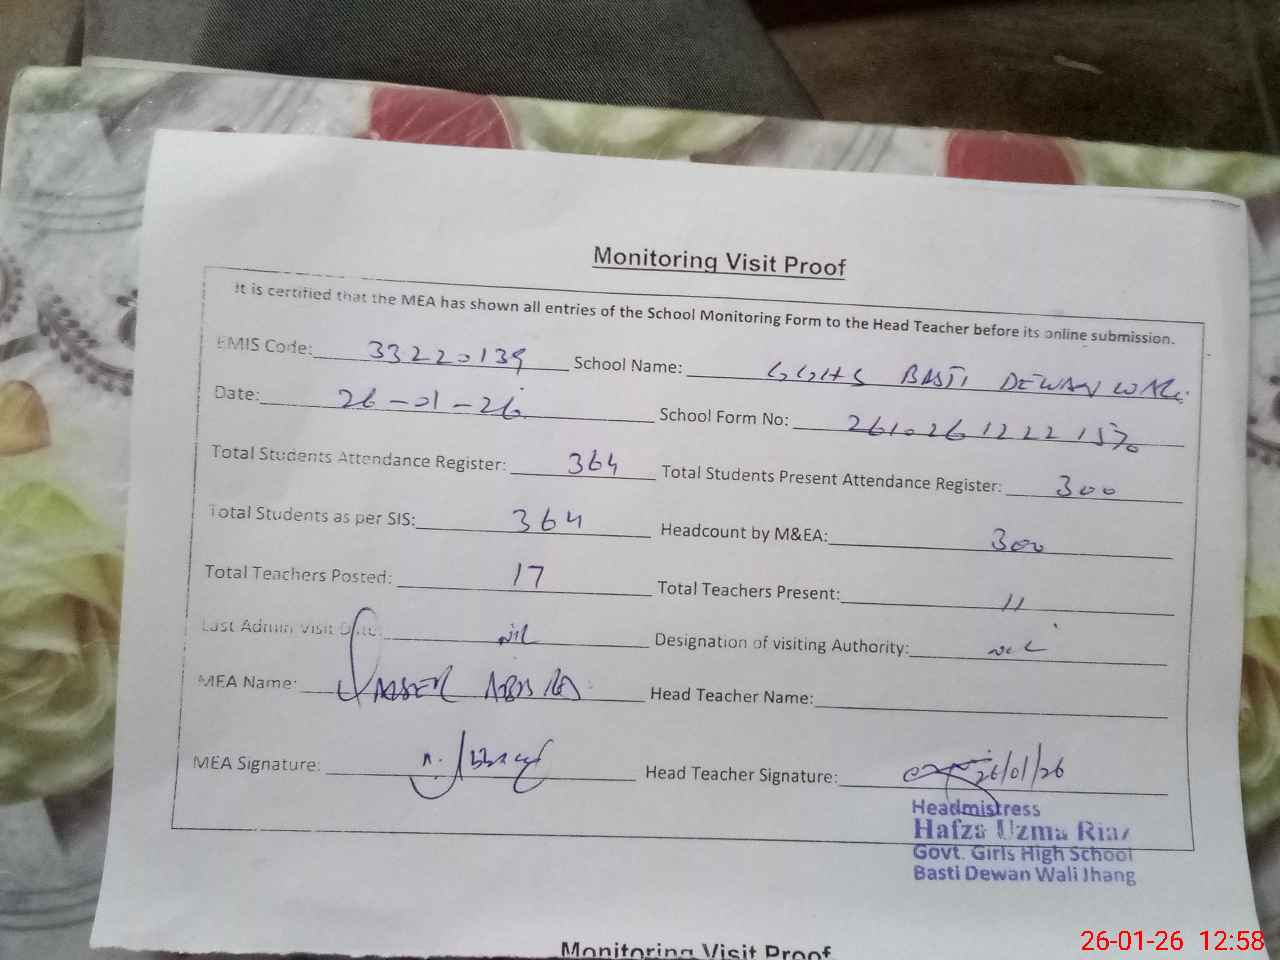 Monitoring Visit Proof
It is certified that the MEA has shown all entries of the School Monitoring Form to the Head Teacher before its online submission.
EMIS Code: 33220139 School Name: GGHS BASTI DEWAN WALI
Date: 26-01-26 School Form No:
Total Students Attendance Register: 364 Total Students Present Attendance Register: 300
Total Students as per SIS: 364 Headcount by M&EA: 300
Total Teachers Posted: 17 Total Teachers Present: 11
Last Admin Visit Date: nil Designation of visiting Authority: nil
MEA Name: Head Teacher Name:
MEA Signature: Head Teacher Signature: 26/01/26
Headmistress
Hafza Uzma Riaz
Govt. Girls High School
Basti Dewan Wali Jhang
Monitoring Visit Proof
26-01-26 12:58